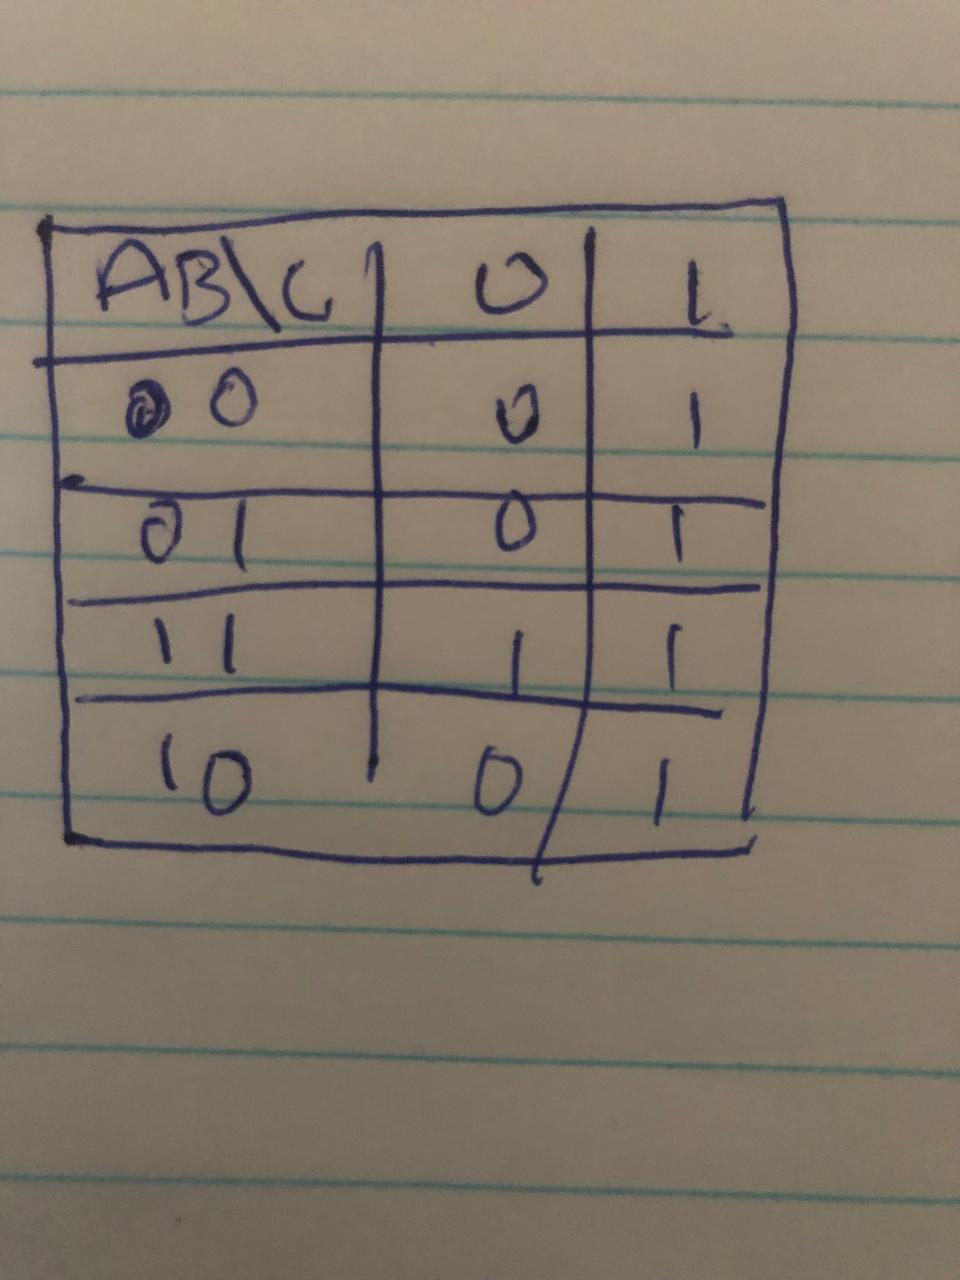 AB\C 0 1
00 0 1
01 0 1
11 1 1
10 0 1